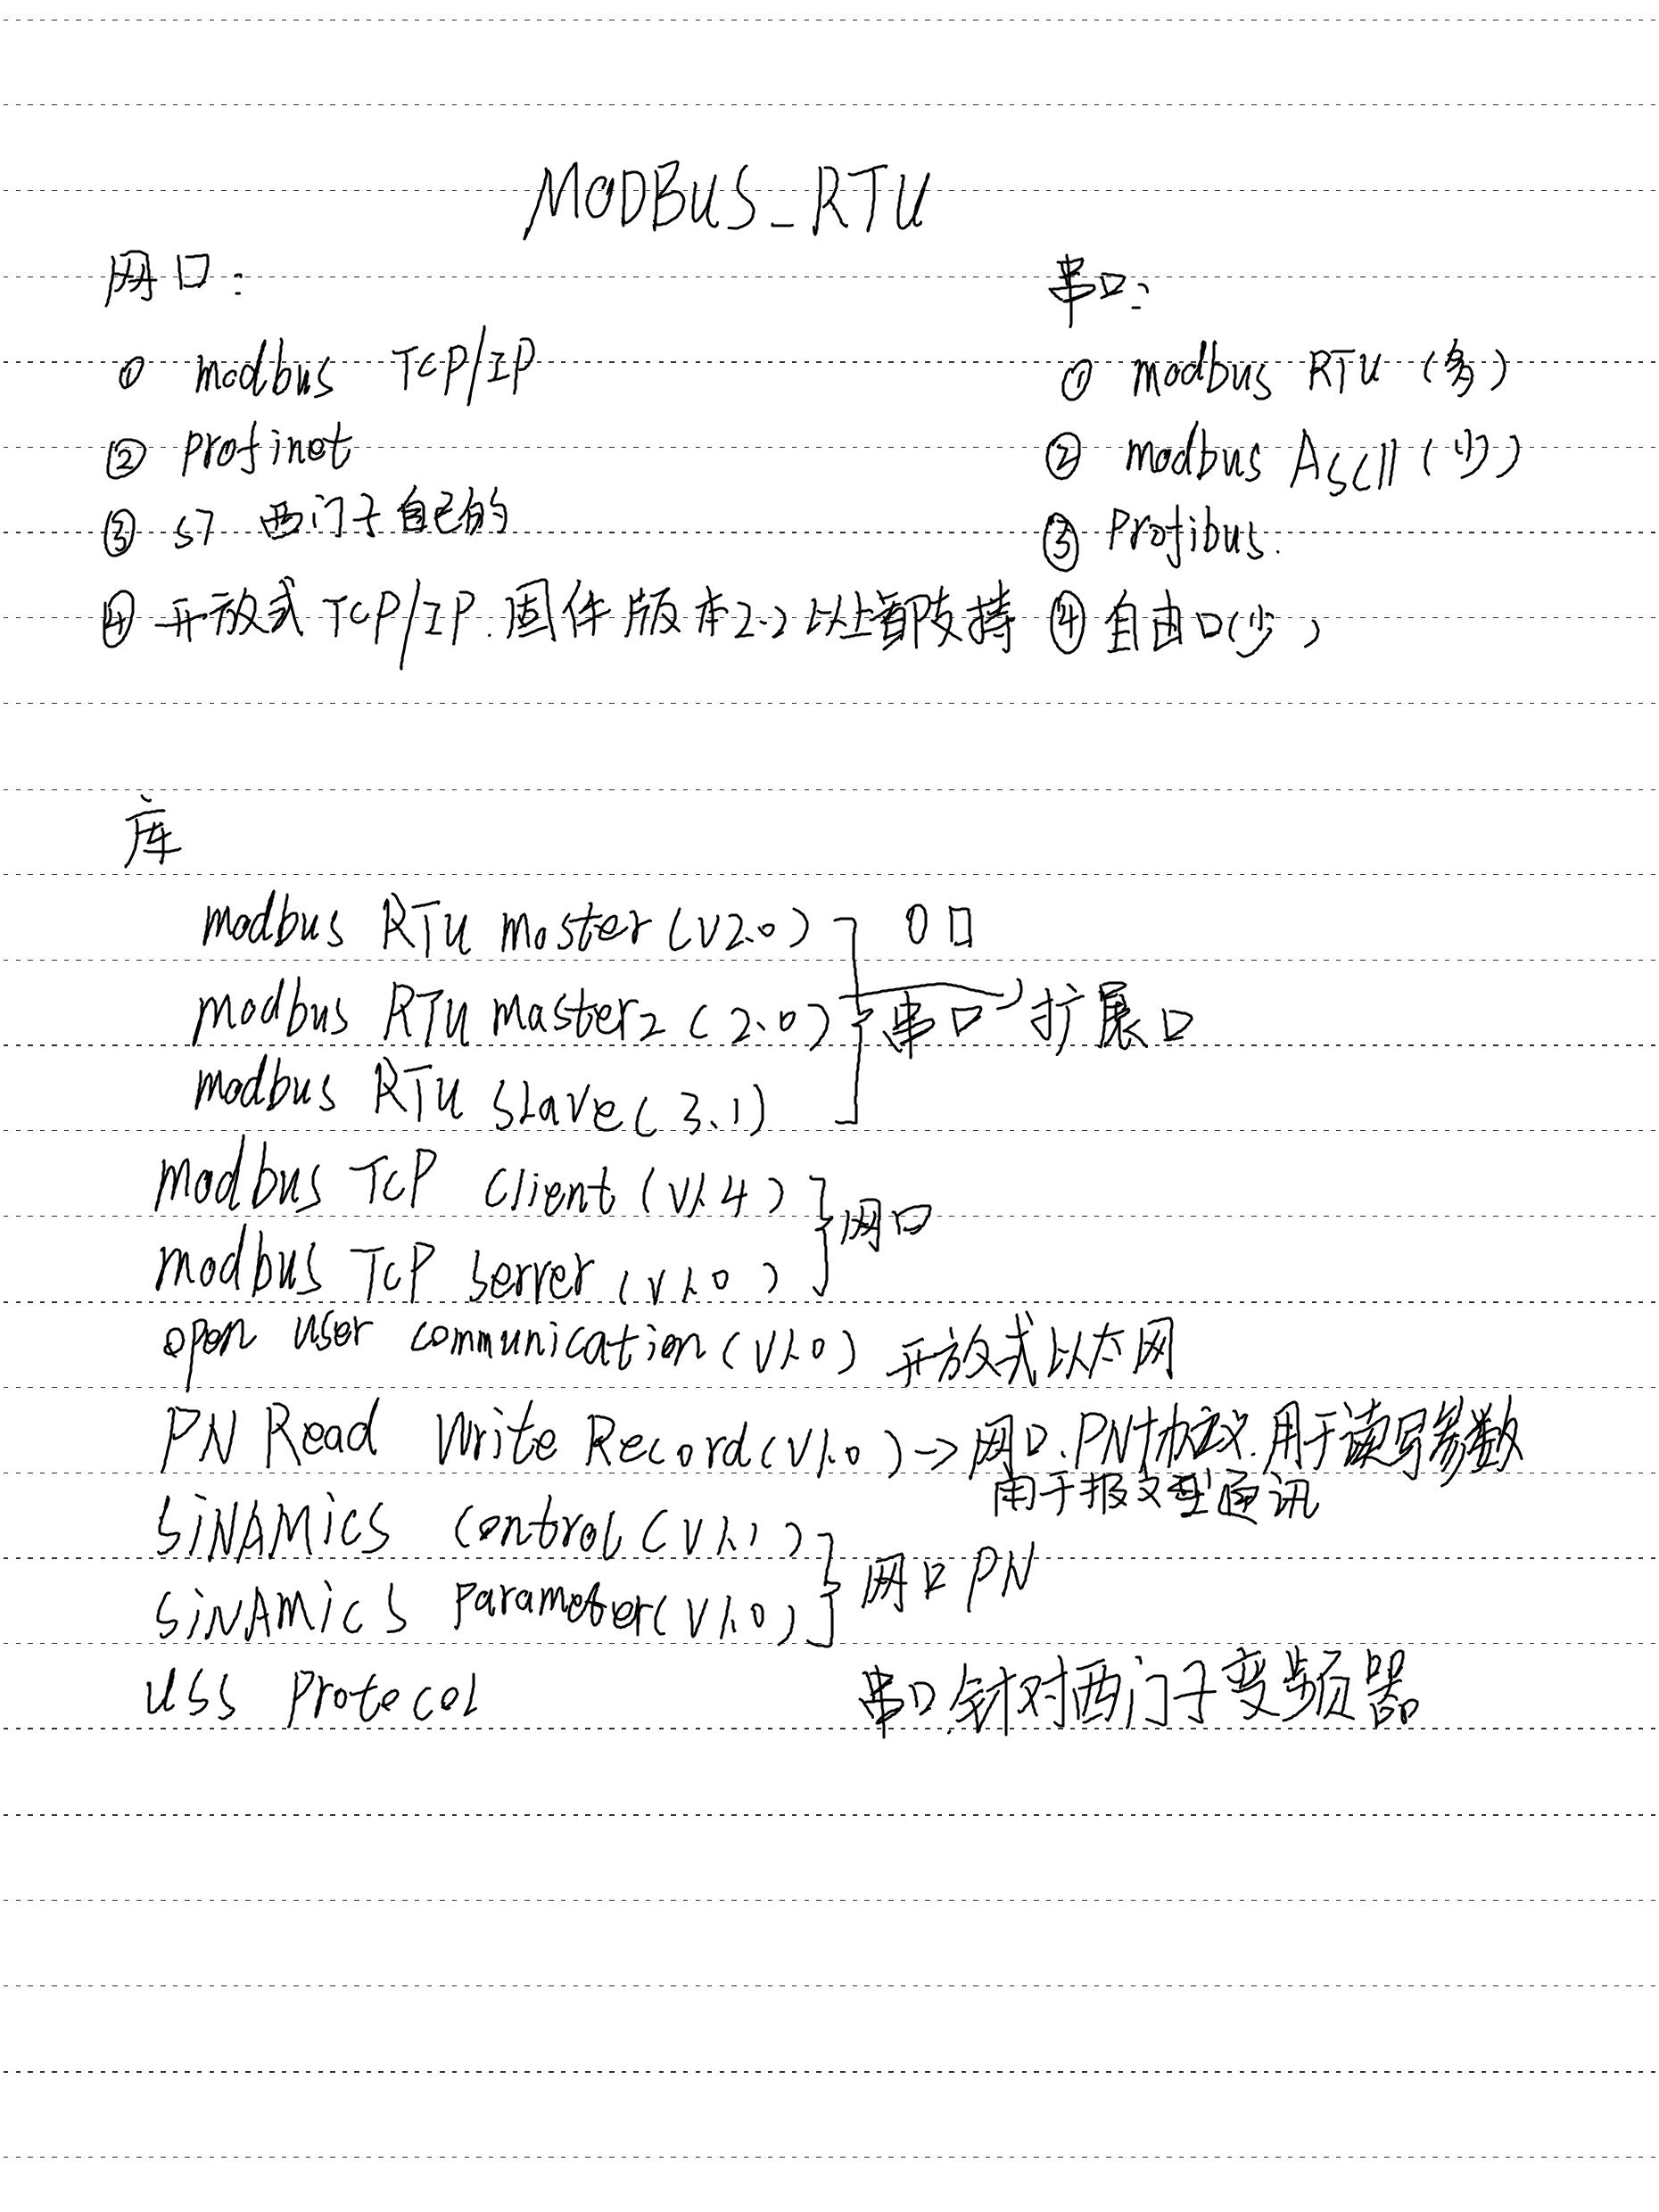 MODBUS_RTU
网口：
① modbus TCP/IP
② profinet
③ S7 西门子自己的
④ 开放式 TCP/IP. 固件版本2.2以上都支持
串口：
① modbus RTU (多)
② modbus ASCII (少)
③ Profibus.
④ 自由口(少)
库
modbus RTU moster (V2.0) 0口
modbus RTU master2 (2.0) 串口 扩展口
modbus RTU slave (3.1)
modbus TCP Client (V1.4)
网口
modbus TCP server (V1.0)
open user communication (V1.0) 开放式以太网
PN Read Write Record (V1.0) → 网口.PN协议.用于读写参数
用于报文型通讯
SiNAMiCS Control (V1.1)
网口 PN
SiNAMiCS Parameter (V1.0)
USS Protecol 串口.针对西门子变频器